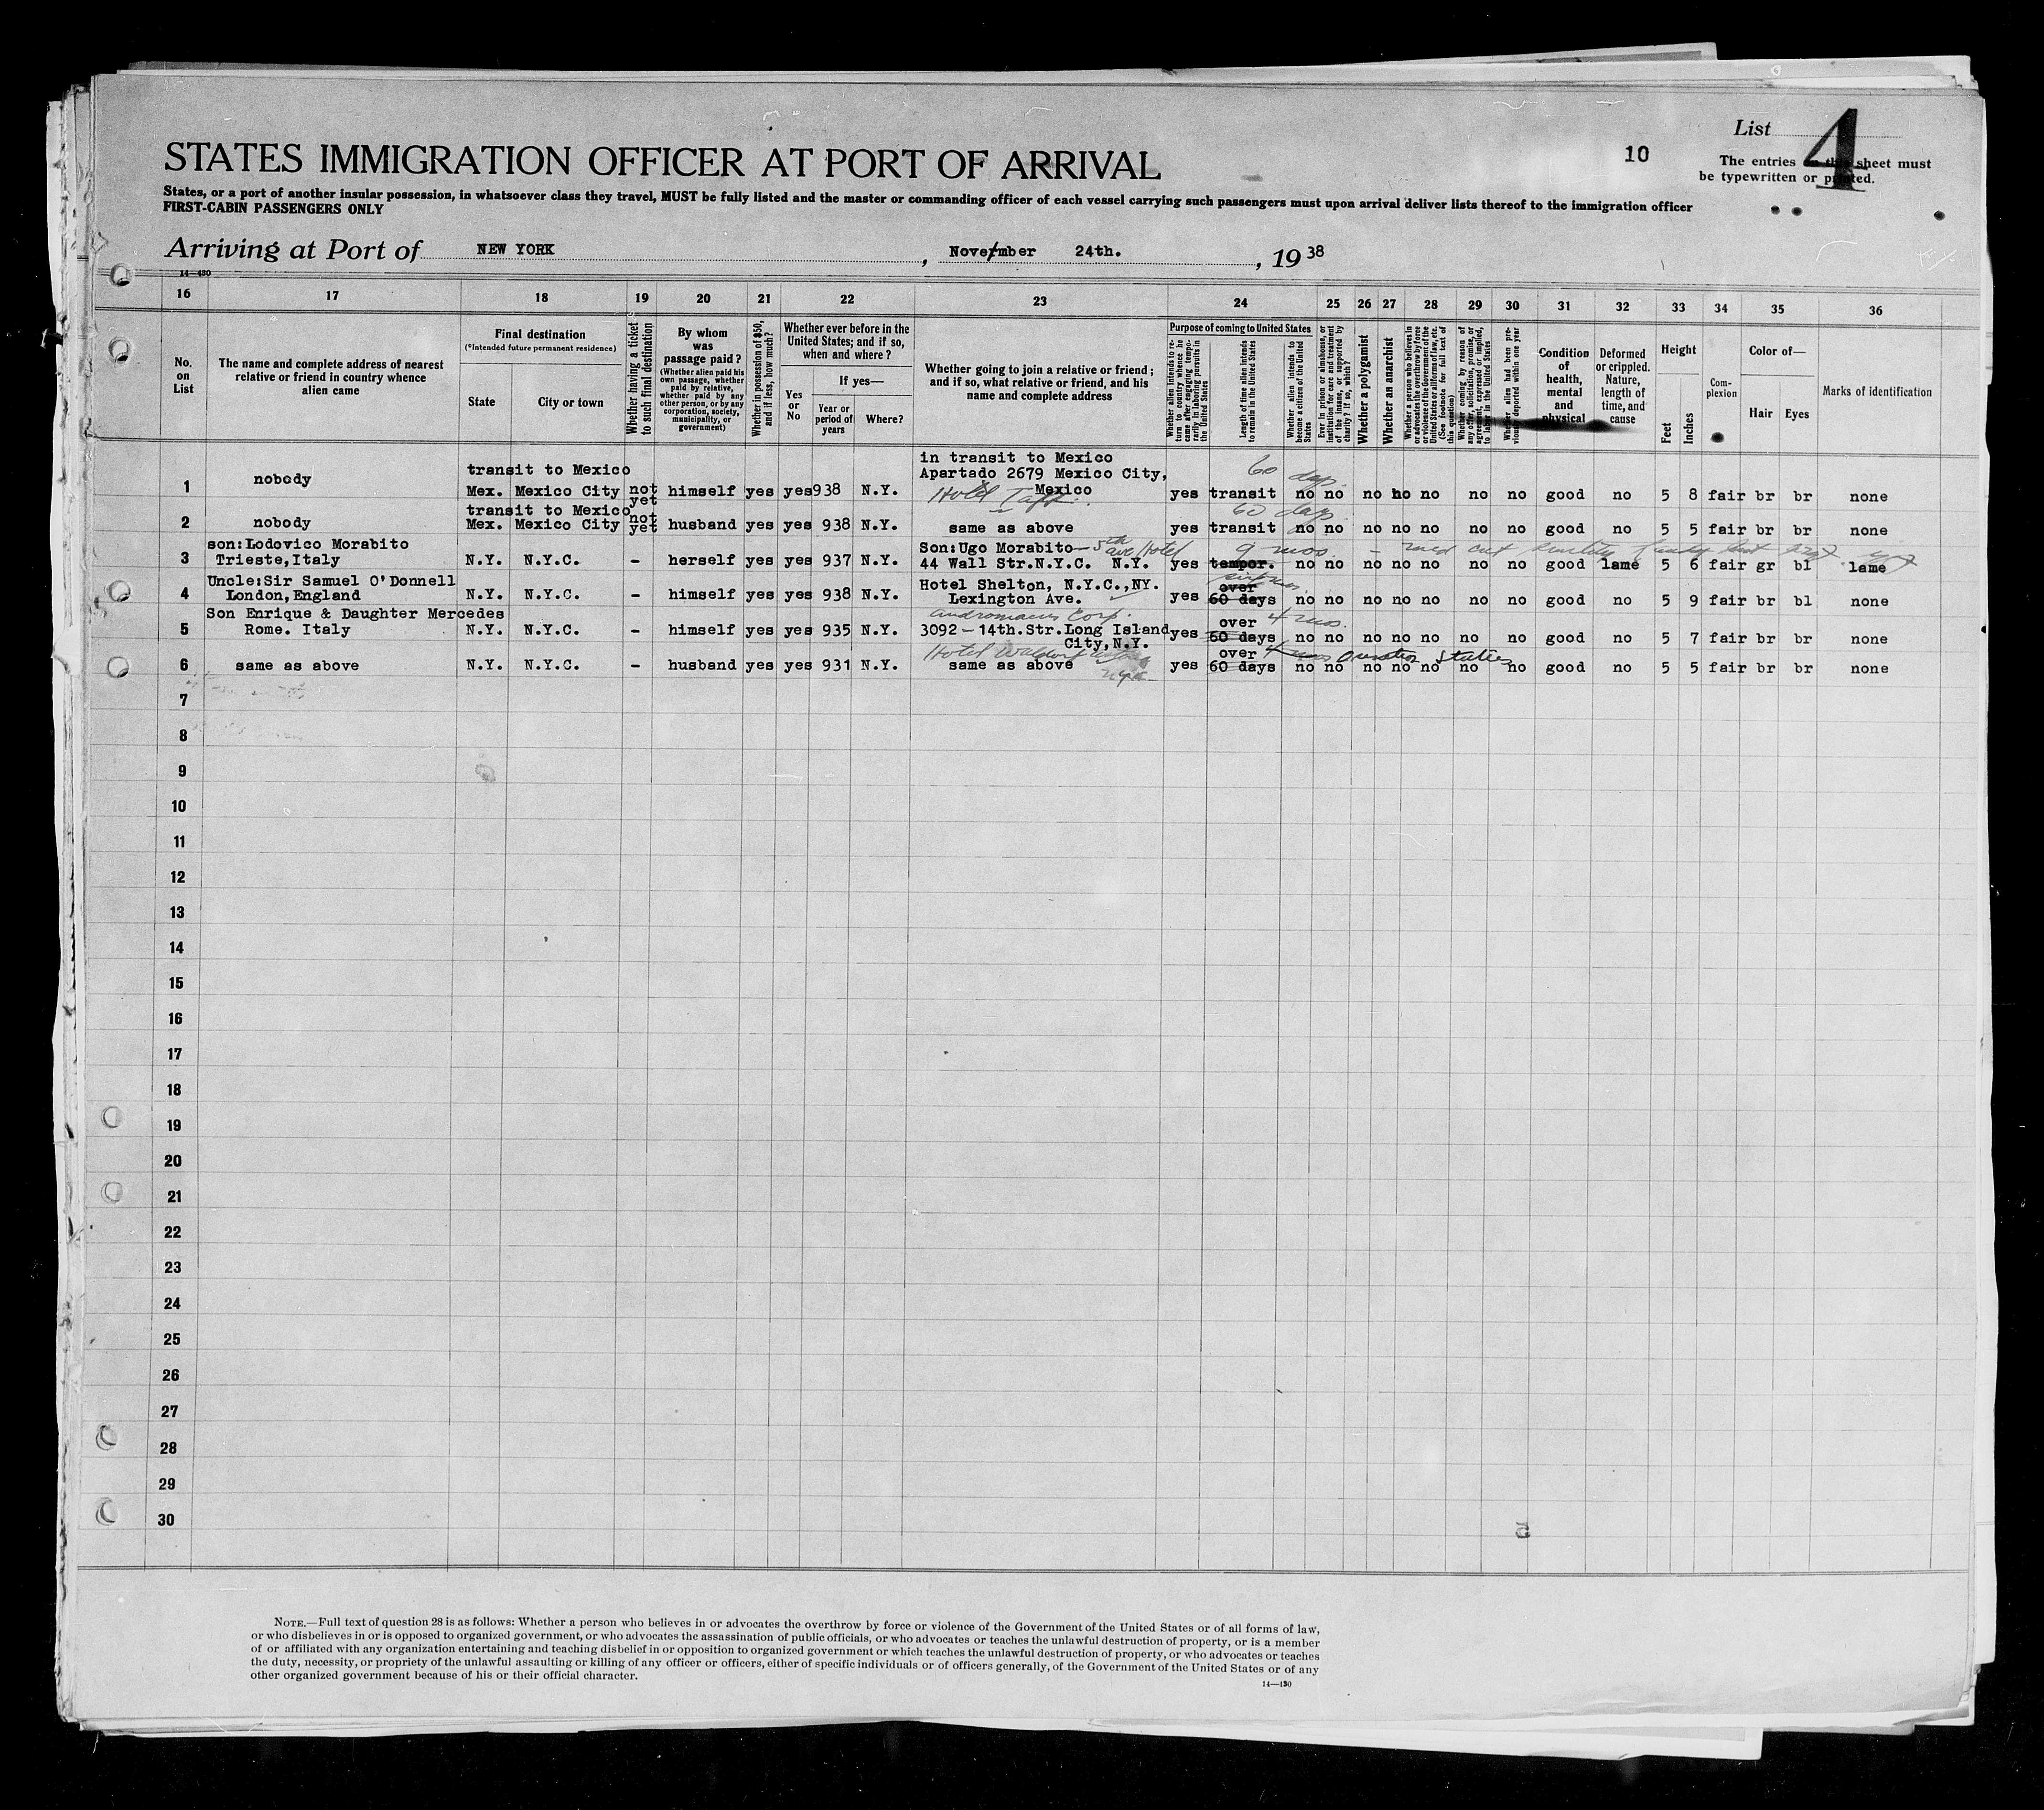 List 4
10
The entries on this sheet must
be typewritten or printed.
STATES IMMIGRATION OFFICER AT PORT OF ARRIVAL
States, or a port of another insular possession, in whatsoever class they travel, MUST be fully listed and the master or commanding officer of each vessel carrying such passengers must upon arrival deliver lists thereof to the immigration officer
FIRST-CABIN PASSENGERS ONLY
Arriving at Port of NEW YORK , November 24th. , 19 38
14—430
16 17 18 19 20 21 22 23 24 25 26 27 28 29 30 31 32 33 34 35 36
No. on List
The name and complete address of nearest relative or friend in country whence alien came
Final destination
(*Intended future permanent residence)
State
City or town
Whether having a ticket to such final destination
By whom was passage paid?
(Whether alien paid his own passage, whether paid by relative, whether paid by any other person, or by any corporation, society, municipality, or government)
Whether in possession of $50, and if less, how much?
Whether ever before in the United States; and if so, when and where?
Yes or No
If yes—
Year or period of years
Where?
Whether going to join a relative or friend; and if so, what relative or friend, and his name and complete address
Purpose of coming to United States
Whether alien intends to return to country whence he came after engaging temporarily in laboring pursuits in the United States
Length of time alien intends to remain in the United States
Whether alien intends to become a citizen of the United States
Ever in prison or almshouse, or institution for care and treatment of the insane, or supported by charity? If so, which?
Whether a polygamist
Whether an anarchist
Whether a person who believes in or advocates the overthrow by force or violence of the Government of the United States or all forms of law, etc. (See footnote for full text of this question)
Whether coming by reason of any offer, solicitation, promise, or agreement, expressed or implied, to labor in the United States
Whether alien had been previously deported within one year
Condition of health, mental and physical
Deformed or crippled. Nature, length of time, and cause
Height
Feet
Inches
Complexion
Color of—
Hair
Eyes
Marks of identification
in transit to Mexico
transit to Mexico Apartado 2679 Mexico City, 60 days.
1 nobody Mex. Mexico City not yet himself yes yes 938 N.Y. Mexico Hotel Taft. yes transit no no no no no no no good no 5 8 fair br br none
transit to Mexico 60 days
2 nobody Mex. Mexico City not yet husband yes yes 938 N.Y. same as above yes transit no no no no no no no good no 5 5 fair br br none
son:Lodovico Morabito Son:Ugo Morabito — 5th ave Hotel 9 mos. — med cert
3 Trieste,Italy N.Y. N.Y.C. - herself yes yes 937 N.Y. 44 Wall Str.N.Y.C. N.Y. yes tempor. no no no no no no no good lame 5 6 fair gr bl lame
Uncle:Sir Samuel O'Donnell Hotel Shelton, N.Y.C.,NY. over
4 London,England N.Y. N.Y.C. - himself yes yes 938 N.Y. Lexington Ave. yes 60 days no no no no no no no good no 5 9 fair br bl none
Son Enrique & Daughter Mercedes Andromacus Corp. over 4 mos.
5 Rome. Italy N.Y. N.Y.C. - himself yes yes 935 N.Y. 3092 - 14th.Str.Long Island City,N.Y. yes 60 days no no no no no no no good no 5 7 fair br br none
Hotel Waldorf over 4 mos
6 same as above N.Y. N.Y.C. - husband yes yes 931 N.Y. same as above yes 60 days no no no no no no no good no 5 5 fair br br none
7
8
9
10
11
12
13
14
15
16
17
18
19
20
21
22
23
24
25
26
27
28
29
30
NOTE.—Full text of question 28 is as follows: Whether a person who believes in or advocates the overthrow by force or violence of the Government of the United States or of all forms of law,
or who disbelieves in or is opposed to organized government, or who advocates the assassination of public officials, or who advocates or teaches the unlawful destruction of property, or is a member
of or affiliated with any organization entertaining and teaching disbelief in or opposition to organized government or which teaches the unlawful destruction of property, or who advocates or teaches
the duty, necessity, or propriety of the unlawful assaulting or killing of any officer or officers, either of specific individuals or of officers generally, of the Government of the United States or of any
other organized government because of his or their official character.
14—430